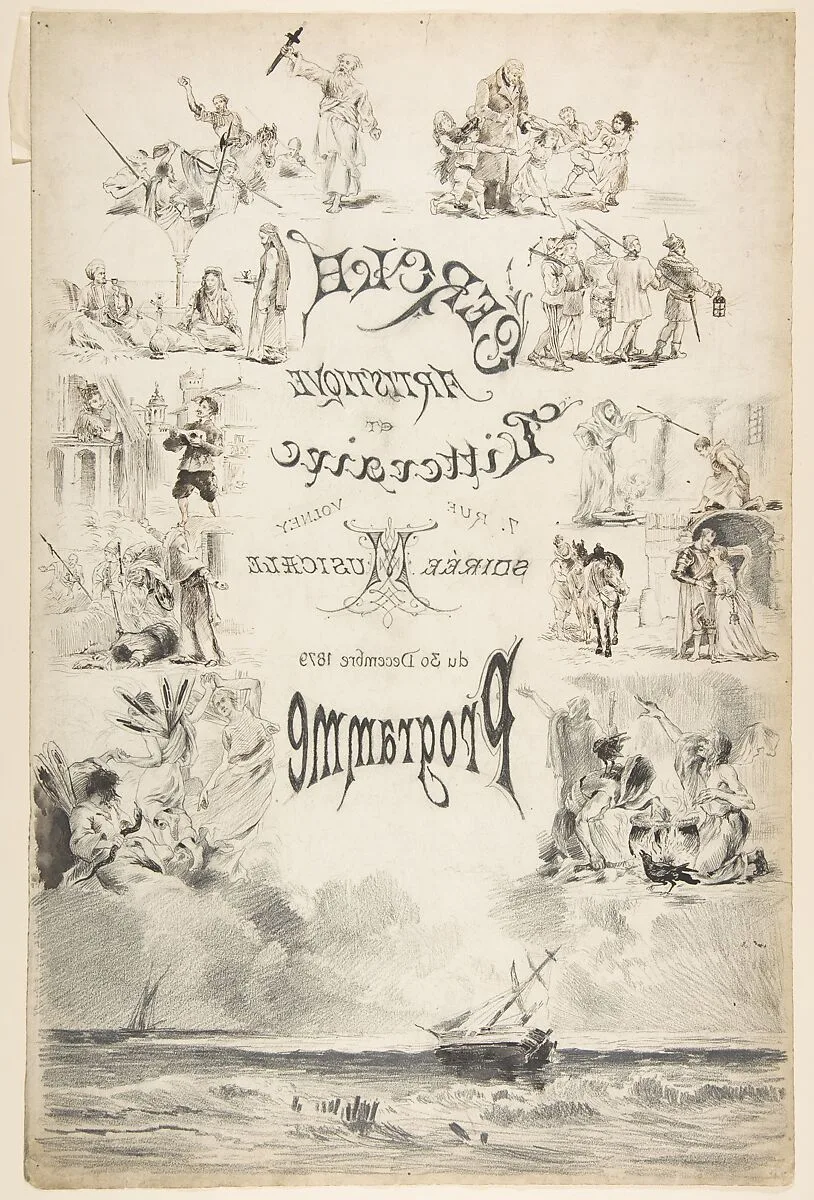 CERCLE
ARTISTIQUE
ET
Litteraire
7. RUE VOLNEY
SOIRÉE MUSICALE
du 30 Decembre 1879
Programme